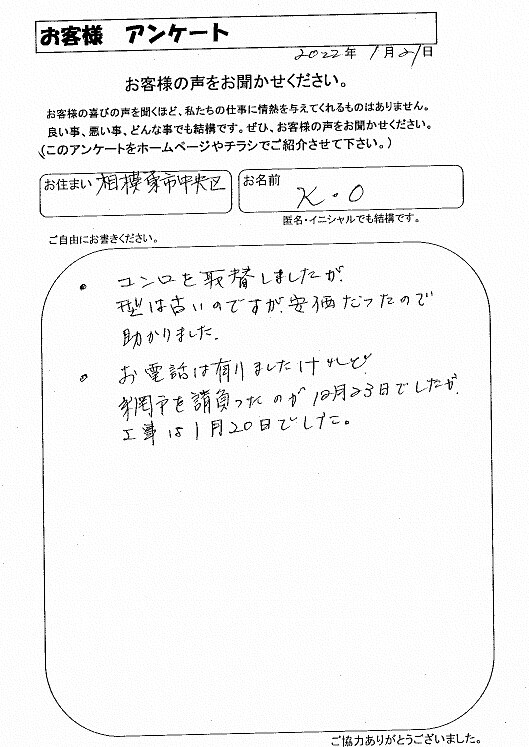 お客様 アンケート
2022年 1月21日
お客様の声をお聞かせください。
お客様の喜びの声を聞くほど、私たちの仕事に情熱を与えてくれるものはありません。
良い事、悪い事、どんな事でも結構です。ぜひ、お客様の声をお聞かせください。
(このアンケートをホームページやチラシでご紹介させて下さい。)
お住まい 相模原市中央区
お名前 K・O
匿名・イニシャルでも結構です。
ご自由にお書きください。
• コンロを取替しましたが、
型は古いのですが、安価だったので
助かりました。
• お電話は有りましたけれど
を請負ったのが12月23日でしたが、
工事は1月20日でした。
ご協力ありがとうございました。